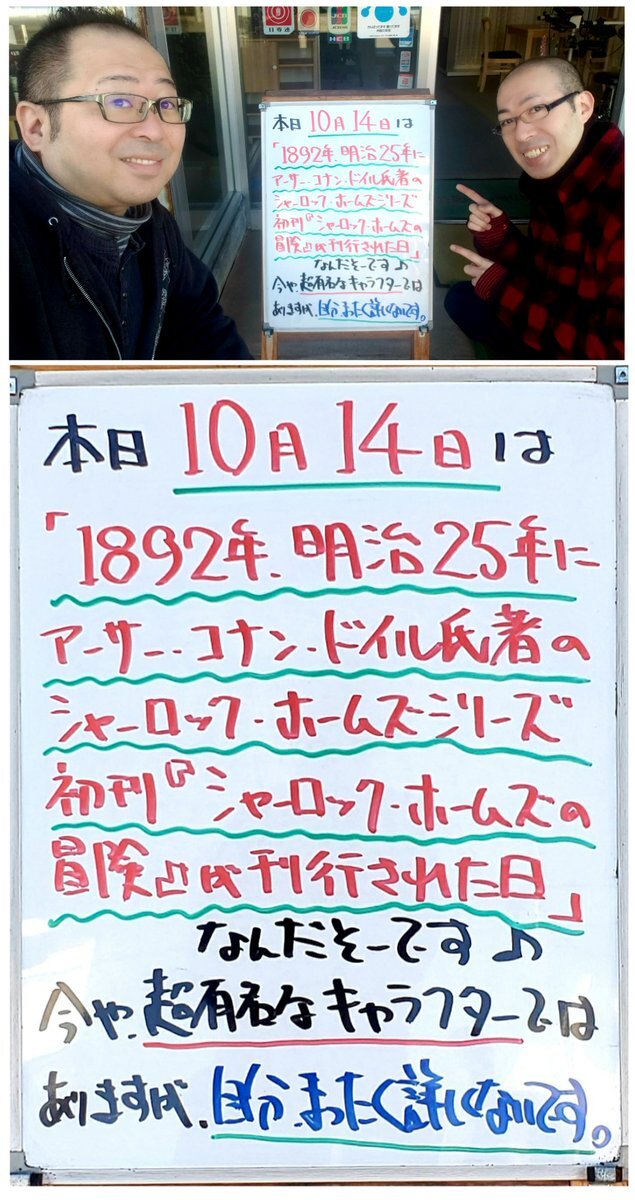 本日10月14日は
「1892年、明治25年に
アーサー・コナン・ドイル氏著の
シャーロック・ホームズシリーズ
初刊『シャーロック・ホームズの
冒険』が刊行された日」
なんだそーです♪
今や、超有名なキャラクターでは
ありますが、自分、まったく詳しくないです。
本日10月14日は
「1892年、明治25年に
アーサー・コナン・ドイル氏者の
シャーロック・ホームズシリーズ
初刊『シャーロック・ホームズの
冒険』が刊行された日」
なんだそーです♪
今や、超有名なキャラフターでは
ありますが、自分、まったく詳しくないです。